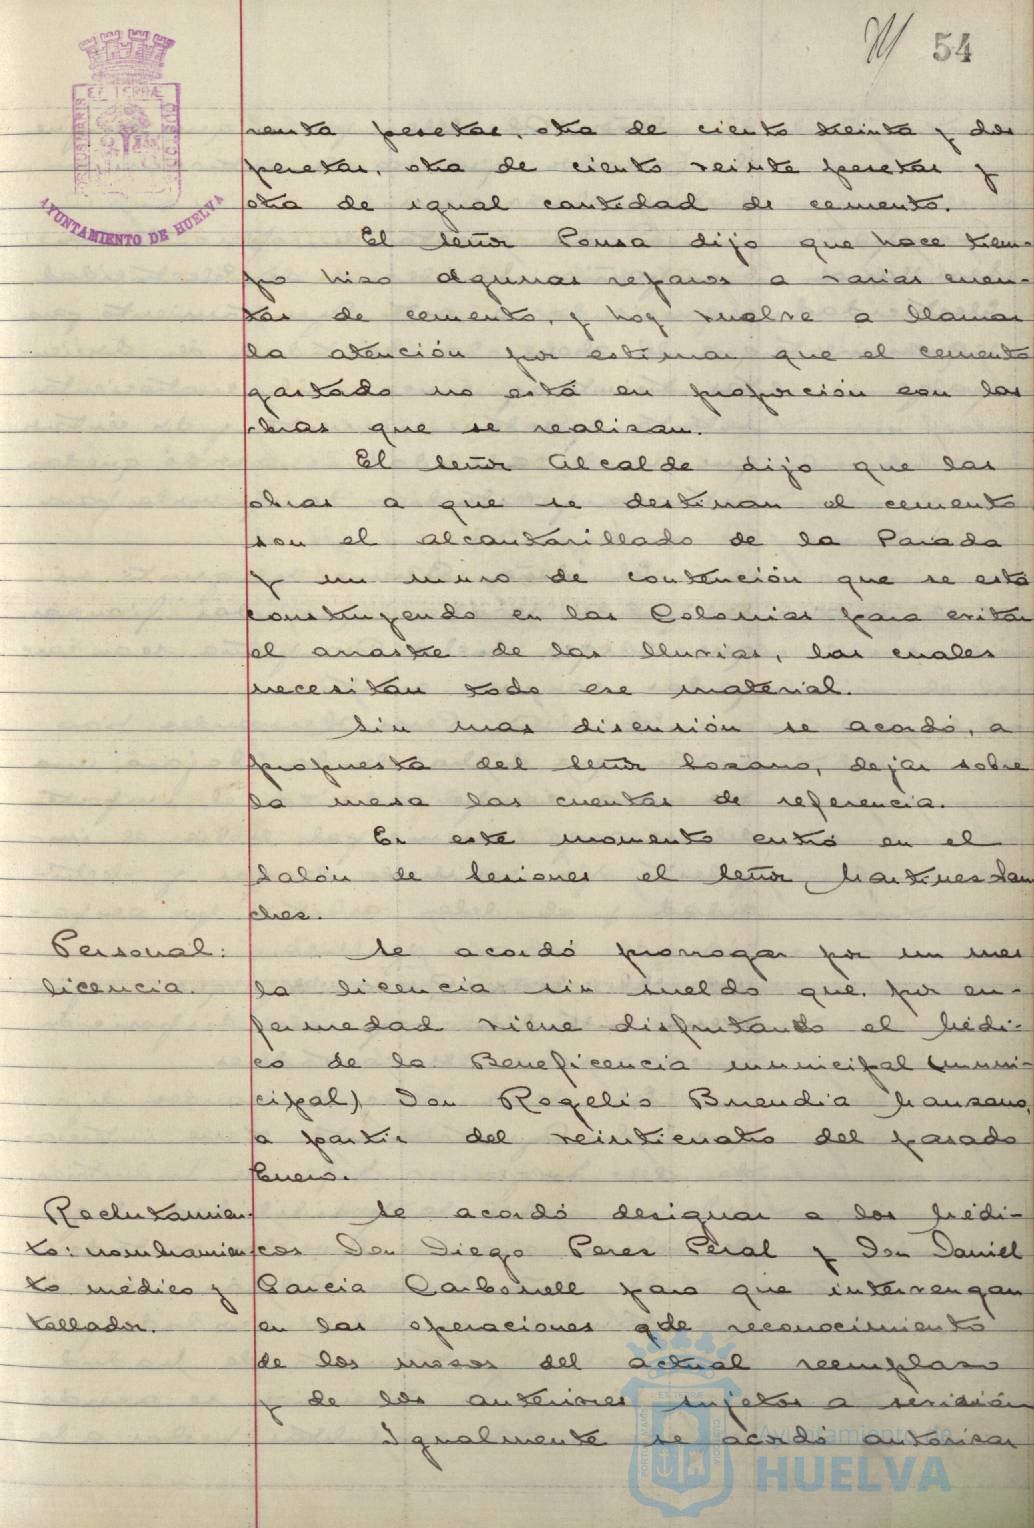 54
PORTUS MARIS ET TERRÆ CUSTODIA
AYUNTAMIENTO DE HUELVA
renta pesetas, otra de ciento treinta y dos
pesetas, otra de ciento veinte pesetas y
otra de igual cantidad de cemento.
El Señor Ponsa dijo que hace tiem-
po hizo algunas reparos a varias cuen-
tas de cemento, y hoy vuelve a llamar
la atención por estimar que el cemento
gastado no está en proporción con las
obras que se realizan.
El Señor Alcalde dijo que las
obras a que se destinan el cemento
son el alcantarillado de la Parada
y un muro de contención que se está
construyendo en las Colonias para evitar
el arrastre de las lluvias, las cuales
necesitan todo ese material.
Sin mas discusión se acordó, a
propuesta del Señor Lozano, dejar sobre
la mesa las cuentas de referencia.
En este momento entró en el
Salón de Sesiones el Señor Martinez San
chez.
Personal:
licencia.
Se acordó prorrogar por un mes
la licencia sin sueldo que, por en-
fermedad viene disfrutando el Médi-
co de la Beneficencia municipal (muni-
cipal) Don Rogelio Buendia Manzano,
a partir del veinticuatro del pasado
Enero.
Reclutamien-
to: nombramien
to médico y
tallador.
Se acordó designar a los Médi-
cos Don Diego Perez Peral y Don Daniel
Garcia Carbonell para que intervengan
en las operaciones de reconocimiento
de los mozos del actual reemplazo
y de los anteriores sujetos a revisión
Igualmente se acordó autorizar
Ayuntamiento de
HUELVA